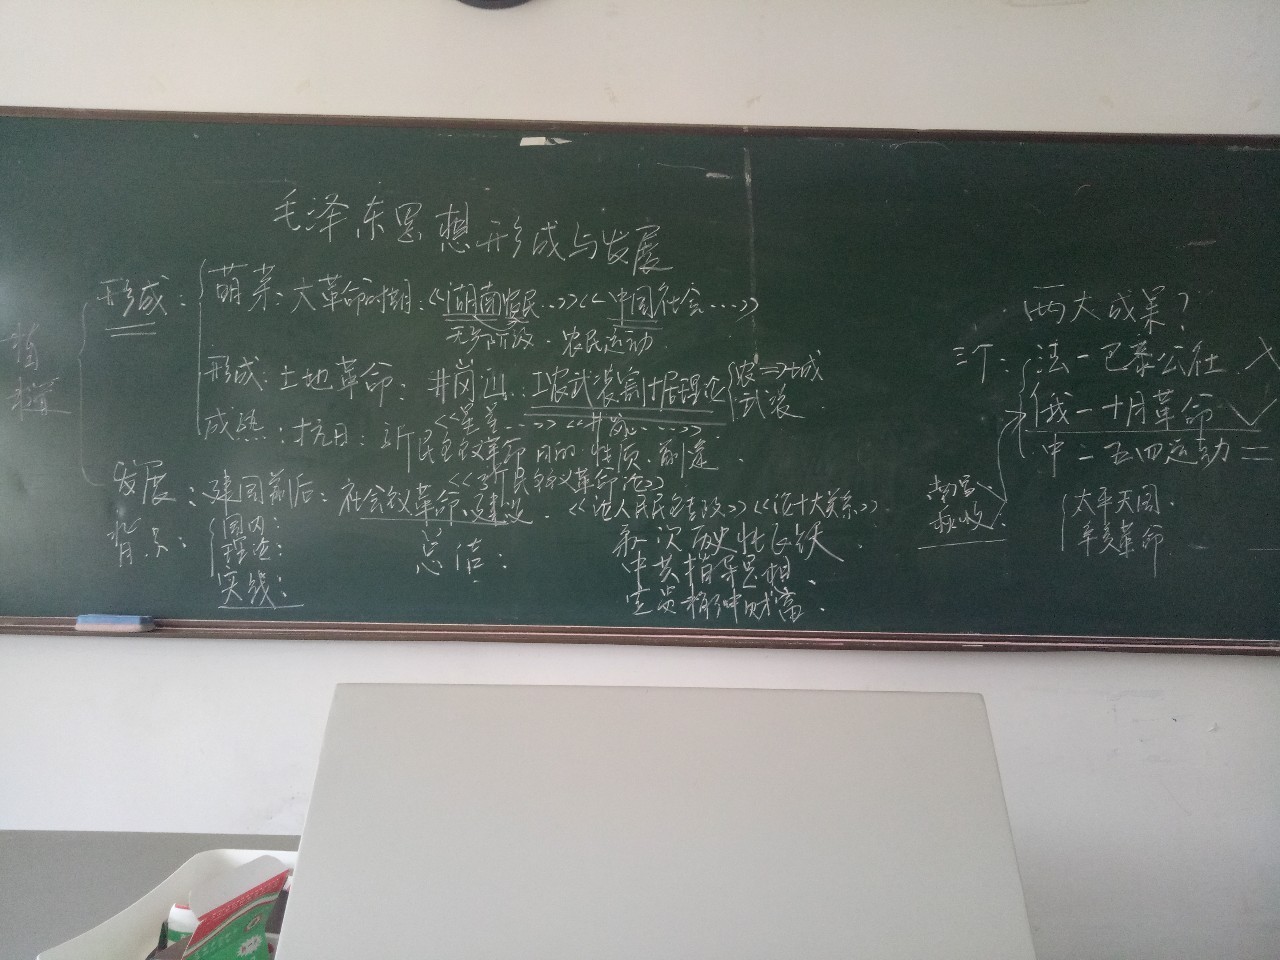 毛泽东思想形成与发展
形成：
萌芽：大革命时期：《湖南农民…》《中国社会…》
无产阶级、农民运动
形成：土地革命：井冈山：工农武装割据理论
农⇒城
武装
《星星…》《井冈…》
成熟：抗日：新民主主义革命目的、性质、前途、
《新民主主义革命论》
发展：建国前后：社会主义革命、建设、《论人民民主专政》《论十大关系》
背景：
国内：
实践：
总结：
第一次历史性飞跃、
中共指导思想、
党员精神财富、
两大成果？
三个：
法－巴黎公社 ╳
俄－十月革命 ✓
中－五四运动 =
南昌、
秋收：
太平天国、
辛亥革命